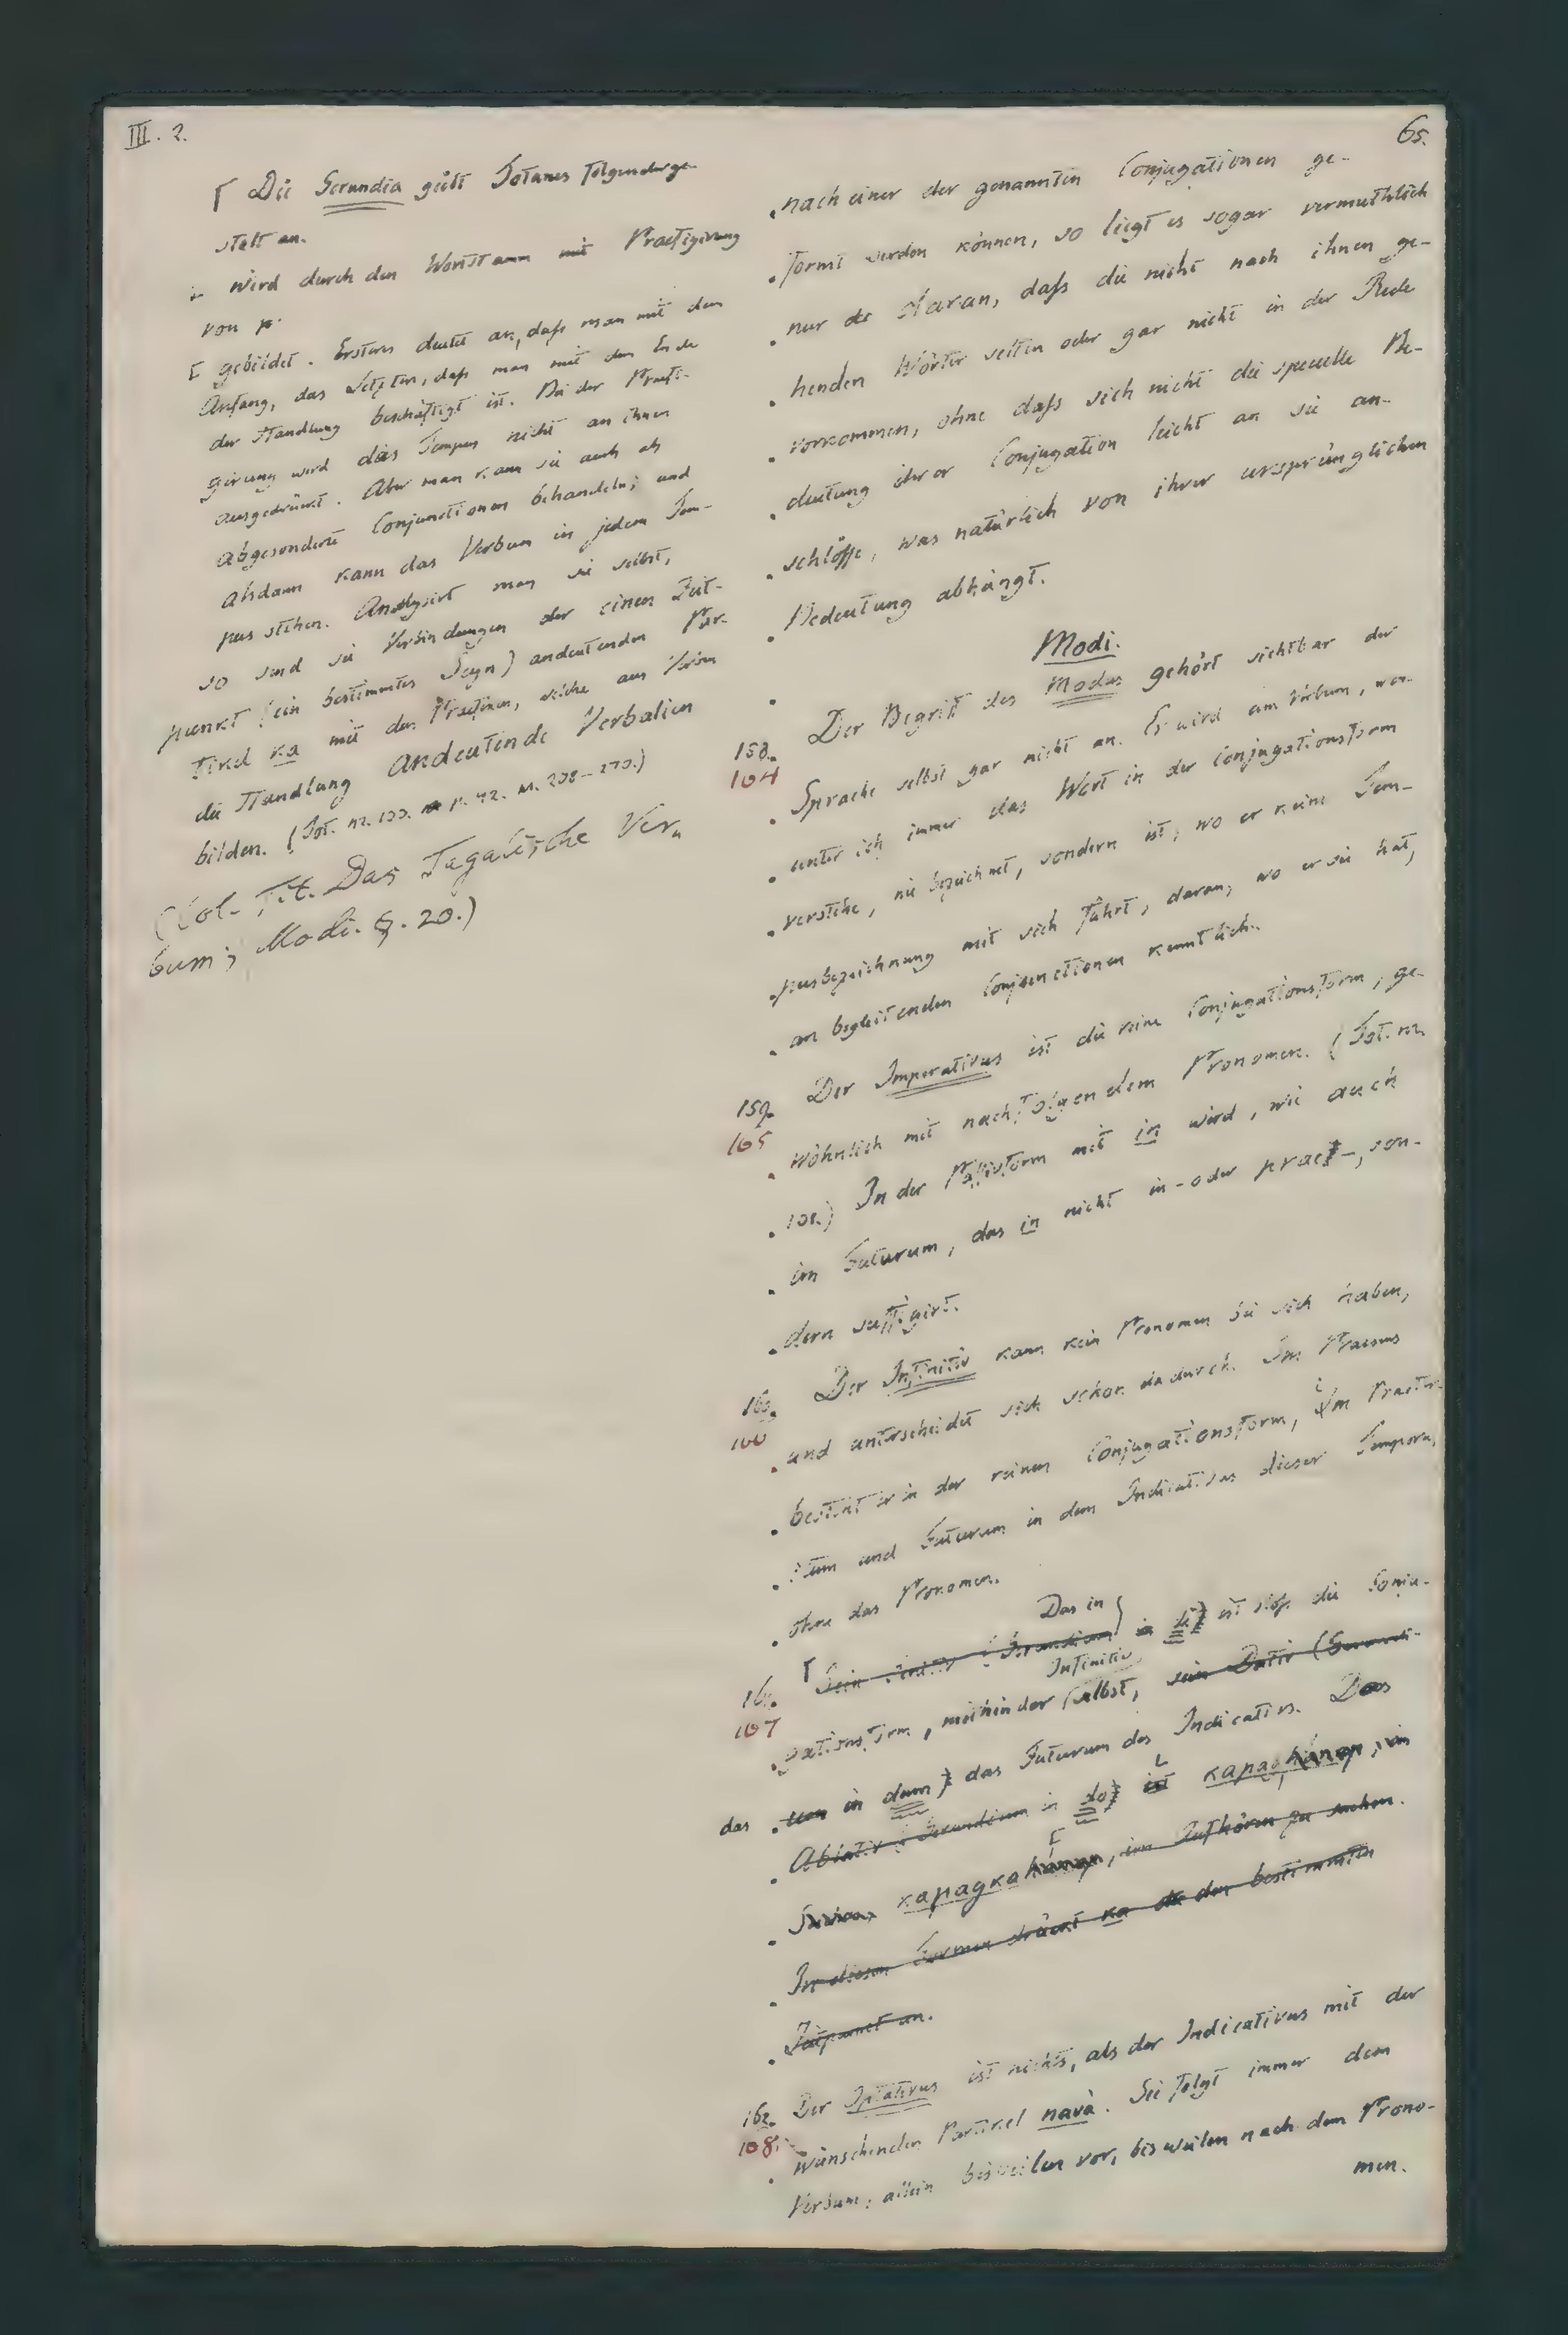 III. 2.
65.
⌈ Die Gerundia giebt Totanes folgenderge-
stalt an.
wird durch den Wortstamm mit Praefigirung
von p.
[ gebildet. Ersteres deutet an, daſs man mit dem
Anfang, das Letztere, daſs man mit dem Ende
der Handlung beschäftigt ist. Bei der Praefi-
girung wird das Tempus nicht an ihnen
ausgedrückt. Aber man kann sie auch als
abgesonderte Conjunctionen behandeln; und
alsdann kann das Verbum in jedem Tem-
pus stehen. Analysirt man sie selbst,
so sind sie Verbindungen der einen Zeit-
punkt (ein bestimmtes Seyn) andeutenden Par-
tikel ka mit den Praefixen, welche aus Verben
die Handlung andeutende Verbalien
bilden. (Tot. nr. 100. p. 42. nr. 208–270.)
(Col. Tit. Das Tagalische Ver-
bum; Modi. §. 20.)
nach einer der genannten Conjugationen ge-
formt werden können, so liegt es sogar vermuthlich
nur daran, daſs die nicht nach ihnen ge-
henden Wörter selten oder gar nicht in der Rede
vorkommen, ohne daſs sich nicht die specielle Be-
deutung ihrer Conjugation leicht an sie an-
schlöſse, was natürlich von ihrer ursprünglichen
Bedeutung abhängt.
Modi.
158. Der Begriff des Modus gehört sichtbar der
104
Sprache selbst gar nicht an. Er wird am Verbum, wor-
unter ich immer das Wort in der Conjugationsform
verstehe, nie bezeichnet, sondern ist, wo er keine Tem-
pusbezeichnung mit sich führt, daran, wo er sie hat,
an begleitenden Conjunctionen kenntlich.
159. Der Imperativus ist die reine Conjugationsform, ge-
105
wöhnlich mit nachfolgendem Pronomen. (Tot. nr.
101.) In der Paſsivform mit in wird, wie auch
im Futurum, das in nicht in- oder praef-, son-
dern suffigirt.
160. Der Infinitiv kann kein Pronomen bei sich haben,
106
und unterscheidet sich schon dadurch. Im Praesens
besteht er in der reinen Conjugationsform, im Praeter-
itum und Futurum in dem Indicativus dieser Tempora,
ohne das Pronomen.
Das in
161. ⌈ Sein (Gerundium in di) ist bloſs die Conju-
107
Infinitiv
gationsform, mithin der selbst, sein Dativ (Gerundi-
das um in dum) das Futurum des Indicativs. Das
Ablativ Gerundium in do) ist kapag, im
kapagka, im Aufhören zu suchen.
In diesen Formen drückt ka den bestimmten
Zeitpunct an.
162. Der Optativus ist nichts, als der Indicativus mit der
108.
wünschenden Partikel navà. Sie folgt immer dem
Verbum, allein bisweilen vor, bisweilen nach dem Prono-
men.